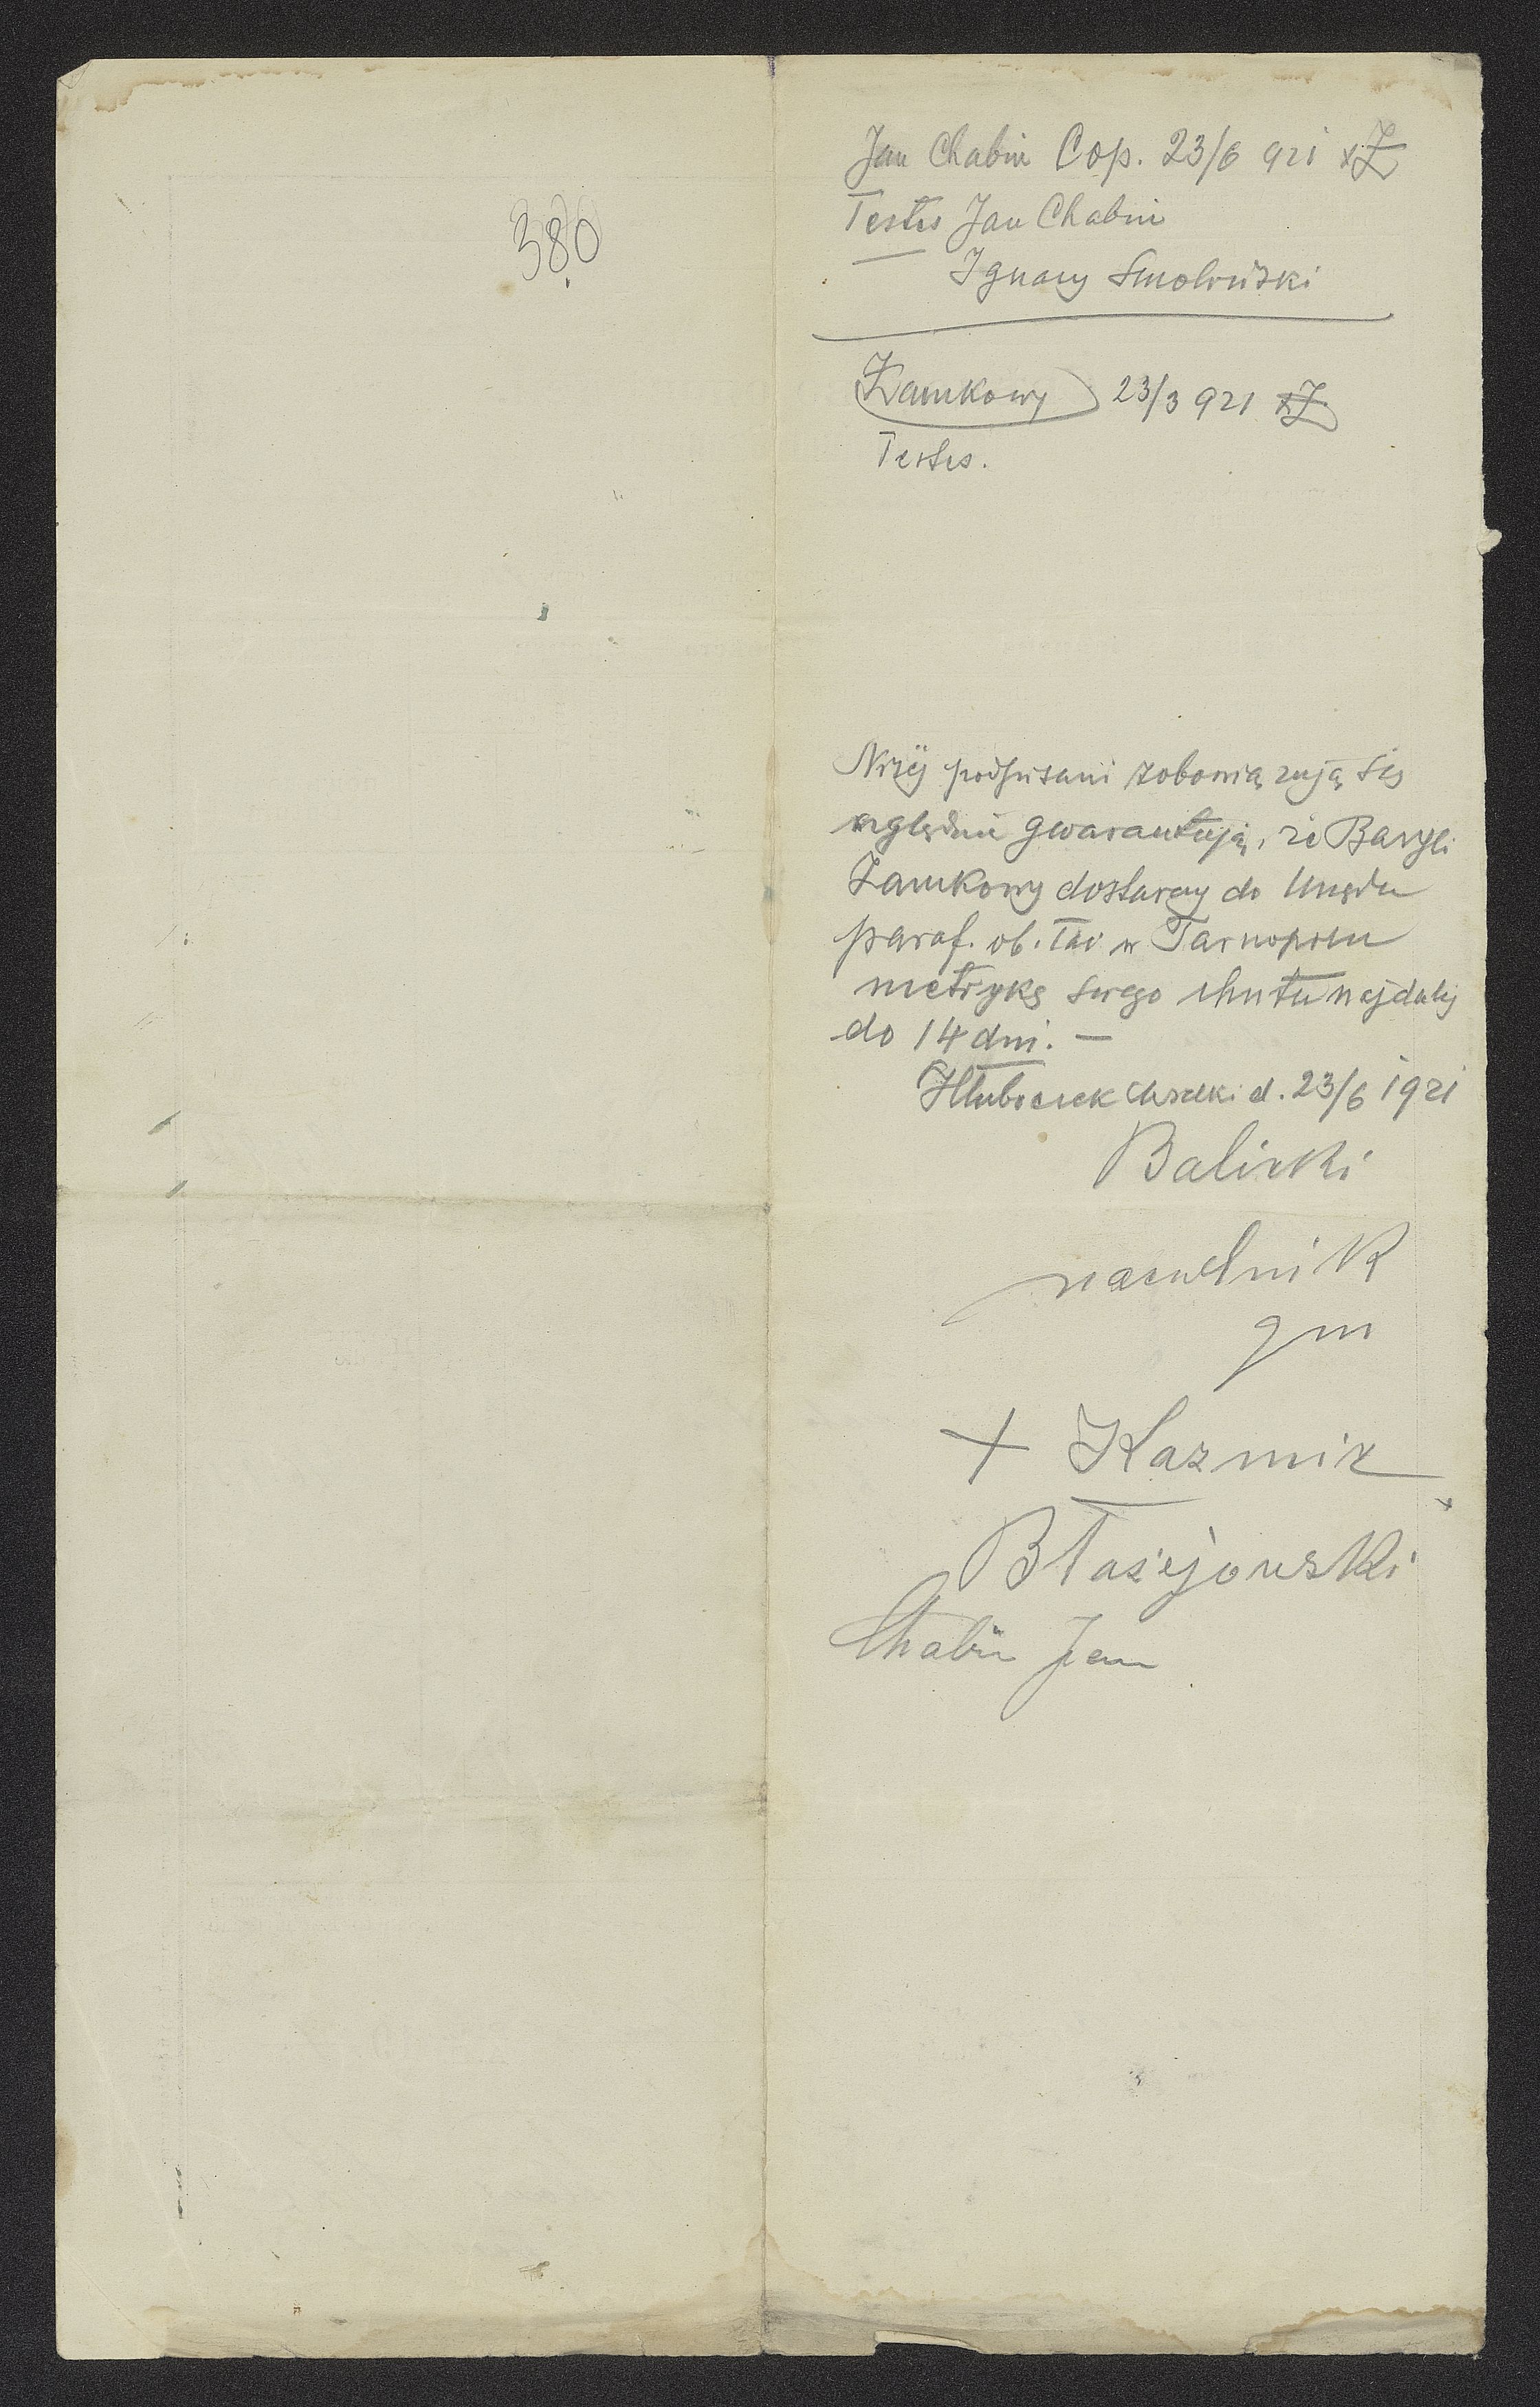 380
Jan Chabin Cop. 23/6 921 xZ
Testes Jan Chabin
Ignacy Smoleński
Zamkowy 23/3 921 xZ
Testes.
Niżej podpisani zobowiązują się
względnie gwarantują, że Bazyli
Zamkowy dostarczy do Urzędu
paraf. ob. łać w Tarnopolu
metrykę swego chrztu najdalej
do 14 dni. —
Hłuboczek wielki d. 23/6 1921
Balicki
naczelnik
gm
+ Kazmir
Błażejowski
Chabin Jan